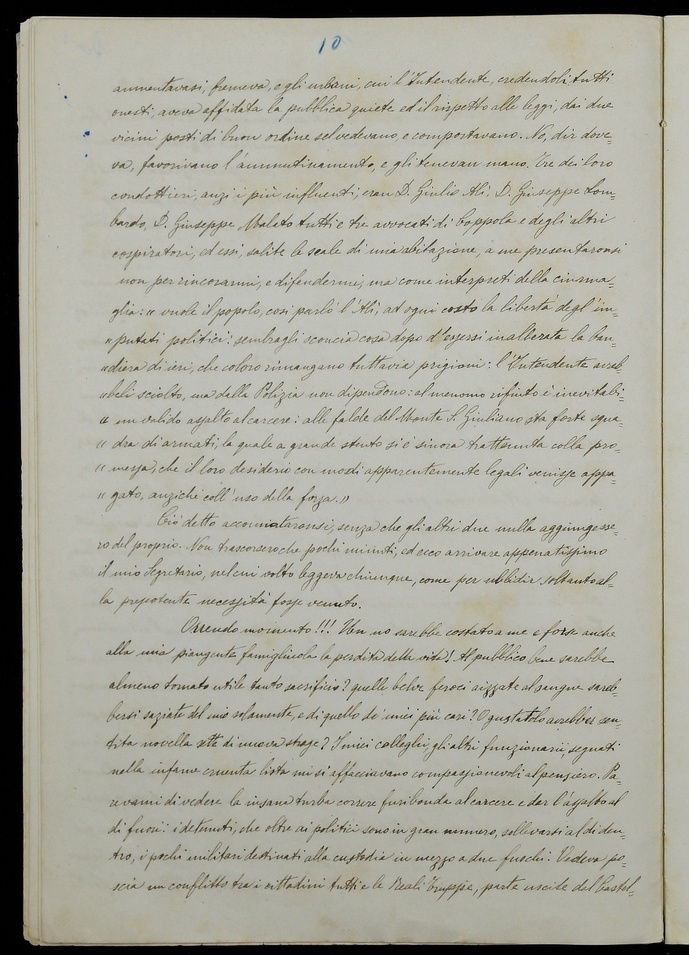 10
ammentavasi, fremeva, e gli urbani, cui l'Intendente, credendoli tutti
onesti, aveva affidata la pubblica quiete ed il rispetto alle leggi, dai due
vicini posti di buon ordine sel vedevano, e comportavano. No, dir dove=
va, favorivano l'ammutinamento, e gli tenevan mano. Tre dei loro
condottieri, anzi i più influenti, eran D. Giulio Alì, D. Giuseppe Lom=
bardo, D. Giuseppe Malato tutti e tre avvocati di Coppola e degli altri
cospiratori, ed essi, salite le scale di mia abitazione, a me presentaronsi
non per rincorarmi, e difendermi, ma come interpreti della ciurma=
glia: "vuole il popolo, così parlò l'Alì, ad ogni costo la libertà degl'im=
"putati politici: sembragli sconcia cosa dopo d'essersi inalberata la ban=
"diera di ieri, che coloro rimangano tuttavia prigioni: l'Intendente avreb=
"beli sciolto, ma dalla Polizia non dipendono: al menomo rifiuto è inevitabi=
" un valido assalto al carcere: alle falde del Monte S. Giuliano sta forte squa=
" dra di armati, la quale a grande stento si è sinora trattenuta colla pro=
" messa, che il loro desiderio con modi apparentemente legali venisse appa=
" gato, anzichè coll'uso della forza."
Ciò detto accomiataronsi, senza che gli altri due nulla aggiungesse=
ro del proprio. Non trascorsero che pochi minuti, ed ecco arrivare appenatissimo
il mio Segretario, nel cui volto leggeva chiunque, come per ubbidir soltanto al=
la prepotente necessità fosse venuto.
Orrendo momento!!! Un no sarebbe costato a me e forse anche
alla mia piangente famigliuola la perdita della vita! Al pubblico bene sarebbe
almeno tornato utile tanto sacrifizio? quelle belve feroci aizzate al sangue sareb=
bersi saziate del mio solamente, e di quello de' miei più cari? O gustatolo avrebber sen=
tita novella sete di nuova strage? I miei colleghi, gli altri funzionarii, segnati
nella infame cruenta lista mi si affacciavano compassionevoli al pensiero. Pa=
revami di vedere la insana turba correre furibonda al carcere e dar l'assalto al
di fuori: i detenuti, che oltre ai politici sono in gran numero, sollevarsi al di den=
tro, i pochi militari destinati alla custodia in mezzo a due fuochi: Vedeva po=
scia un conflitto tra i cittadini tutti e le Reali Truppe, parte uscite dal Castel=